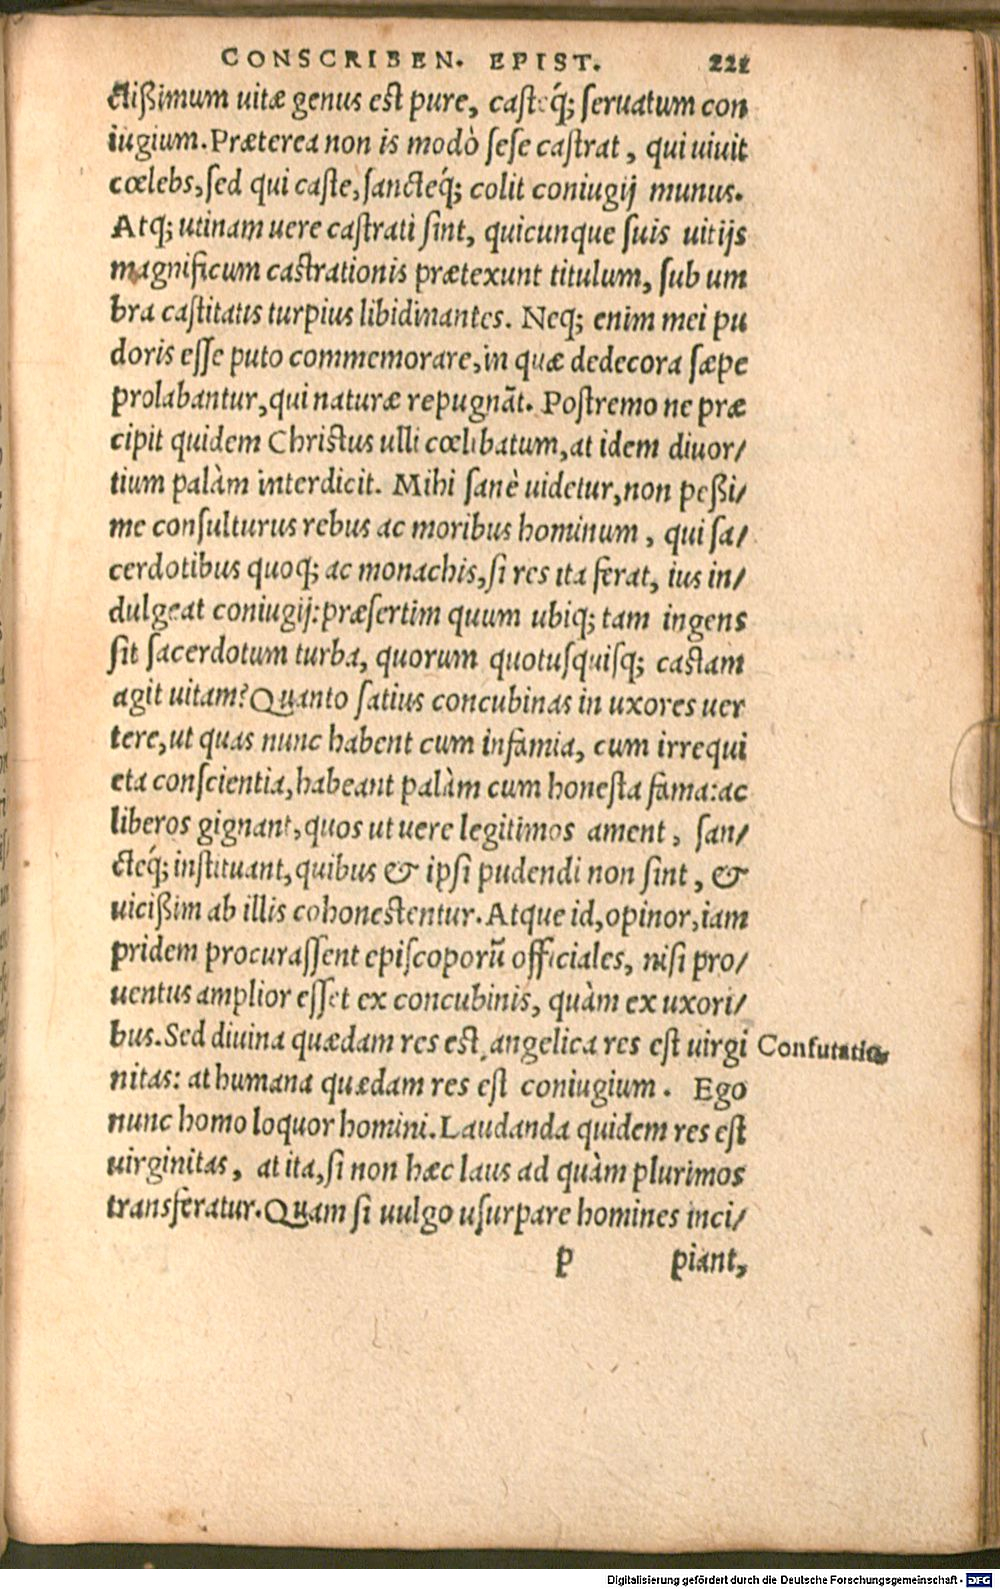 CONSCRIBEN. EPIST. 221
ctißimum uitæ genus est pure, casteq́; seruatum con
iugium. Præterea non is modò sese castrat, qui uiuit
cœlebs, sed qui caste, sancteq́; colit coniugij munus.
Atq; utinam uere castrati sint, quicunque suis uitijs
magnificum castrationis prætexunt titulum, sub um
bra castitatis turpius libidinantes. Neq; enim mei pu
doris esse puto commemorare, in quæ dedecora sæpe
prolabantur, qui naturæ repugnãt. Postremo ne præ
cipit quidem Christus ulli cœlibatum, at idem diuor/
tium palàm interdicit. Mihi sanè uidetur, non peßi/
me consulturus rebus ac moribus hominum, qui sa/
cerdotibus quoq; ac monachis, si res ita ferat, ius in/
dulgeat coniugij: præsertim quum ubiq; tam ingens
sit sacerdotum turba, quorum quotusquisq; castam
agit uitam? Quanto satius concubinas in uxores uer
tere, ut quas nunc habent cum infamia, cum irrequi
eta conscientia, habeant palàm cum honesta fama: ac
liberos gignant, quos ut uere legitimos ament, san/
cteq́; instituant, quibus & ipsi pudendi non sint, &
uicißim ab illis cohonestentur. Atque id, opinor, iam
pridem procurassent episcoporũ officiales, nisi pro/
uentus amplior esset ex concubinis, quàm ex uxori/
bus. Sed diuina quædam res est, angelica res est uirgi Confutatio
nitas: at humana quædam res est coniugium. Ego
nunc homo loquor homini. Laudanda quidem res est
uirginitas, at ita, si non hæc laus ad quàm plurimos
transferatur. Quam si uulgo usurpare homines inci/
p piant,
Digitalisierung gefördert durch die Deutsche Forschungsgemeinschaft - DFG